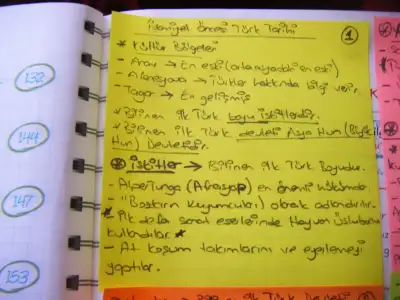 İslamiyet Öncesi Türk Tarihi
1
* Kültür Bölgeleri
- Anav → En eski (orta asyadaki en eski)
- Afanasyova → Türkler hakkında bilgi verir.
- Tagar → En gelişmiş
* Bilinen ilk Türk boyu iskitlerdir.
* Bilinen ilk Türk devleti Asya Hun (Büyük Hun) Devletidir.
* İskitler → Bilinen ilk Türk Boyudur.
- Alper Tunga (Afrasyap) en önemli hükümdar
- "Bozkırın Kuyumcuları" olarak adlandırılır.
* İlk defa sanat eserlerinde Hayvan Üslubunu kullandılar *
- At koşum takımlarını ve eyerlemeyi yaptılar.
132
144
147
153